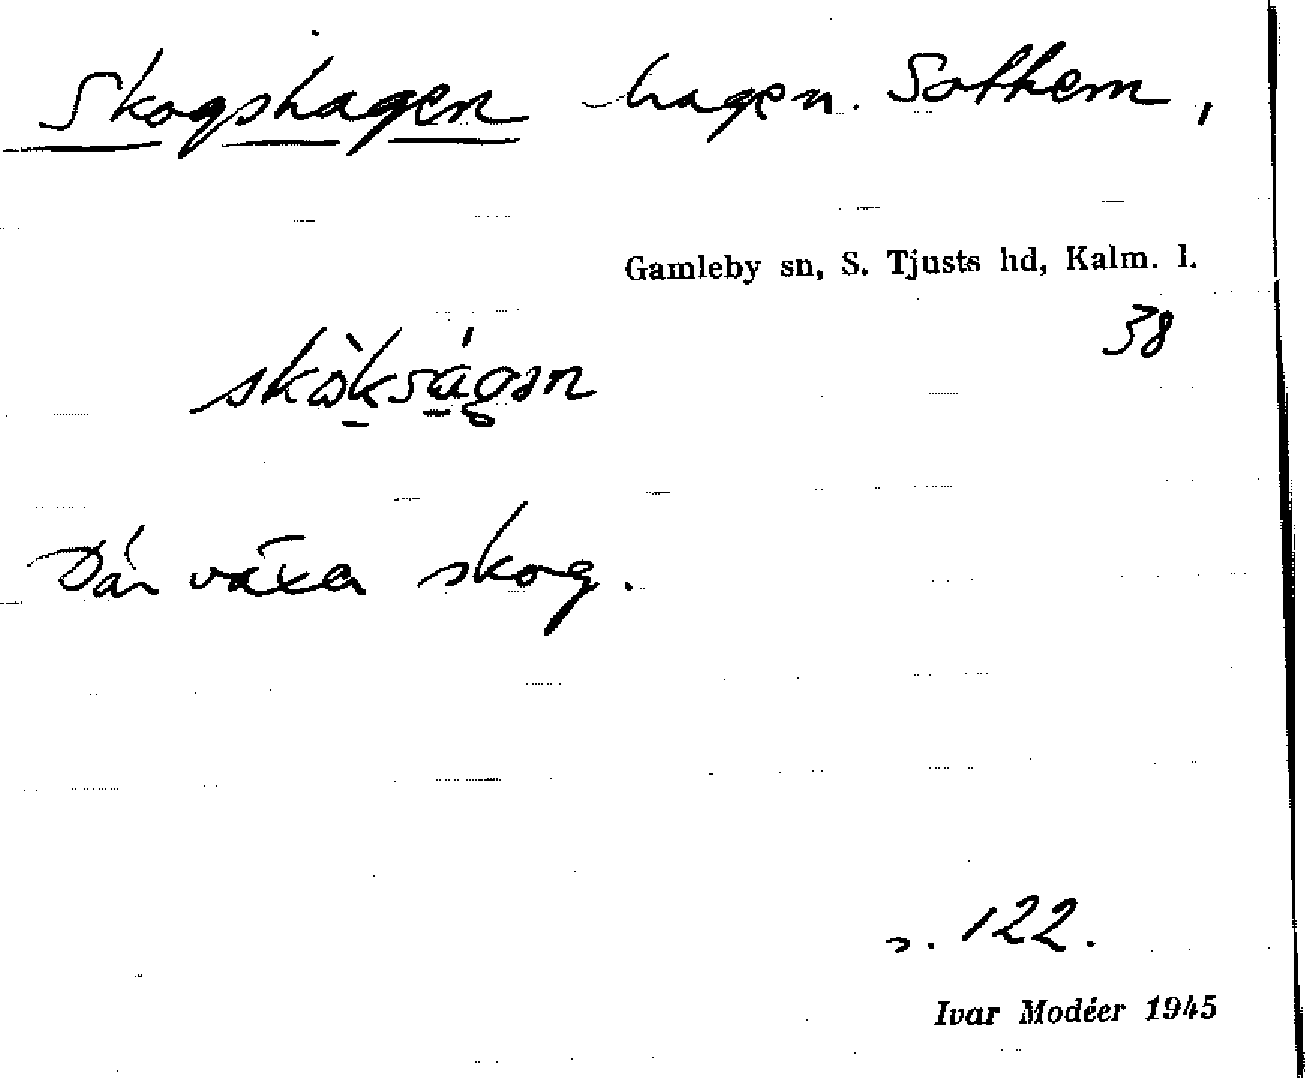 Skogshagen hagen. Sothem,
Gamleby sn, S. Tjusts hd, Kalm. l.
38
Där växer skog.
s. 122.
Ivar Modéer 1945